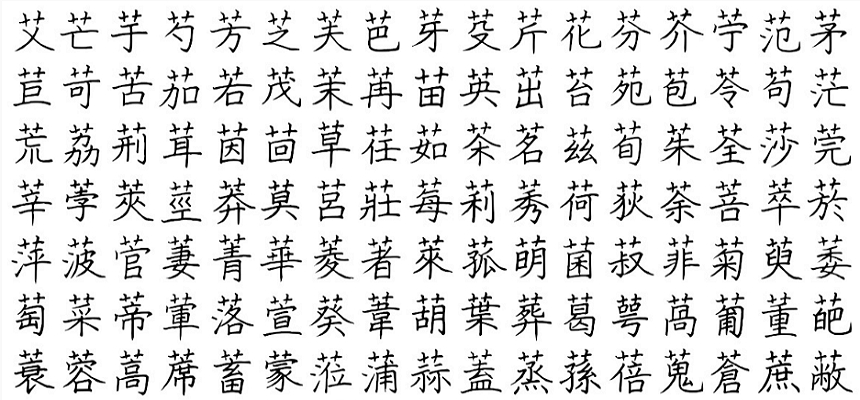 艾芒芋芍芳芝芙芭芽芟芹花芬芥苧范茅
苣苛苦茄若茂茉苒苗英茁苔苑苞苓苟茫
荒荔荊茸茵茴草荏茹茶茗茲荀茱荃莎莞
莘荸莢莖莽莫莒莊莓莉莠荷荻荼菩萃菸
萍菠菅萋菁華菱著萊菰萌菌菽菲菊萸萎
萄菜蒂葷落萱葵葦葫葉葬葛萼萵葡董葩
蓑蓉蒿蓆蓄蒙蒞蒲蒜蓋蒸蓀蓓蒐蒼蔗蔽